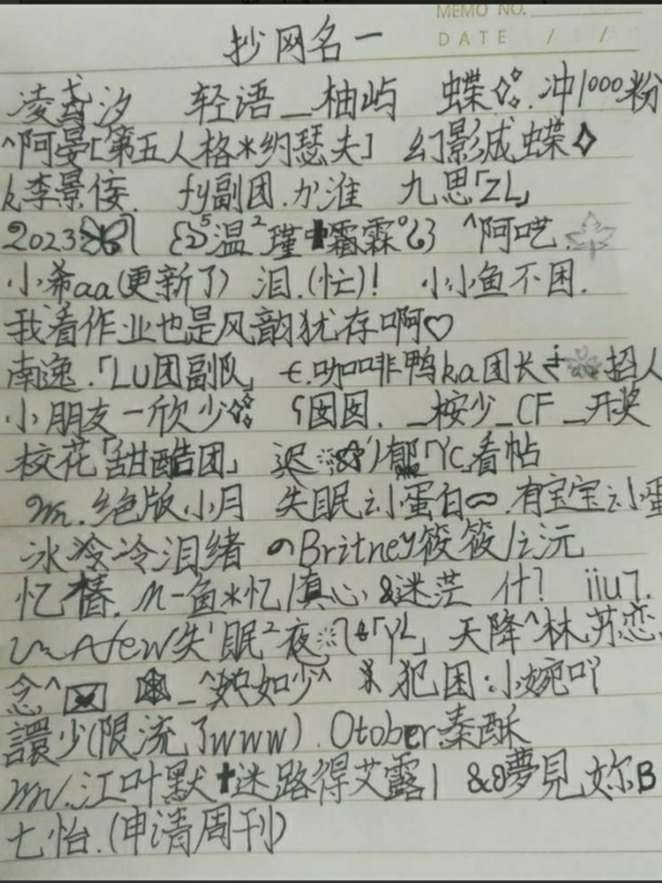 MEMO NO.
DATE / /
抄网名一
凌鸢汐 轻语_柚屿 蝶✧.冲1000粉
^阿晏[第五人格*约瑟夫] 幻影成蝶✧
k李景侒. fy副团.か淮 九思「ZL」
2023 温²瑾✝霜霖 ^阿呓
小希aa(更新了) 泪.(忙)! 小小鱼不困.
我看作业也是风韵犹存啊♡
南逸.「LU团副队」 t.咖啡鸭ka团长 招人
小朋友一欣少 囡囡. _桉少_CF_开奖
校花「甜酷团」 迟 郁「Yc看帖
m.绝版小月 失眠 小蛋白∞.有宝宝 小蛋
冰冷冷泪绪 のBritney筱筱 沅
忆椿. n-鱼*忆/真心&迷茫 什? iiu7.
Afew失¹眠²夜 「YL」 天降^林苏恋
念^ _^姎如少^ 犯困:小婉吖
讓少(限流了www) .Otober素酥
m.江叶默✝迷路得艾露 &夢見妳B
七怡.(申请周刊)